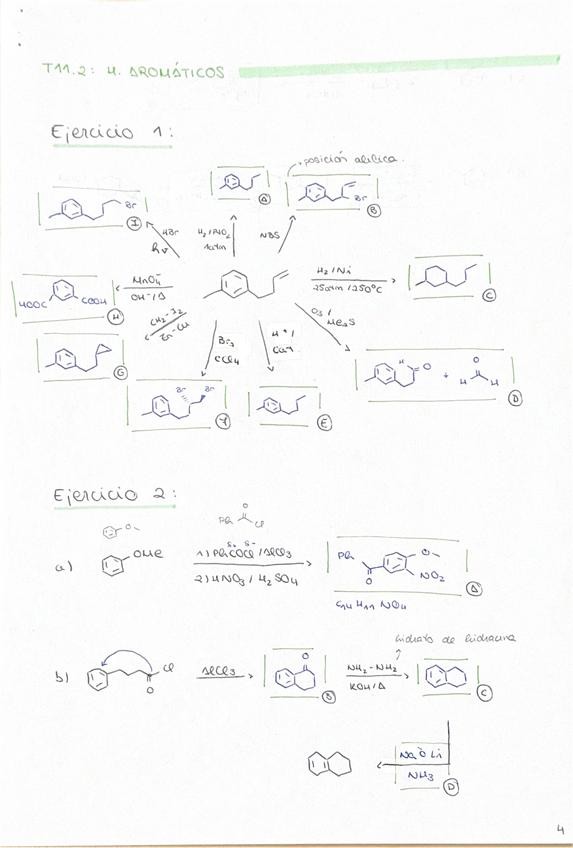 T11.2: H. AROMÁTICOS
Ejercicio 1:
posición alílica.
A
Br
B
Br
I
HBr
hν
H2/PtO2
1atm
NBS
H2/Ni
25atm/250°C
C
HOOC
COOH
H
MnO4-
OH-/Δ
CH2-I2
Zn-Cu
G
Br2
CCl4
Br
Br
F
H+/
Cat.
E
O3/
Me2S
H
O
+
O
H
H
D
Ejercicio 2:
O
Ph
O
Cl
a)
OMe
1) PhCOCl/AlCl3
2) HNO3/H2SO4
Ph
O
O
NO2
A
C14H11NO4
hidrato de hidracina
b)
Cl
O
AlCl3
O
B
NH2-NH2
KOH/Δ
C
Na ó Li
NH3
D
4